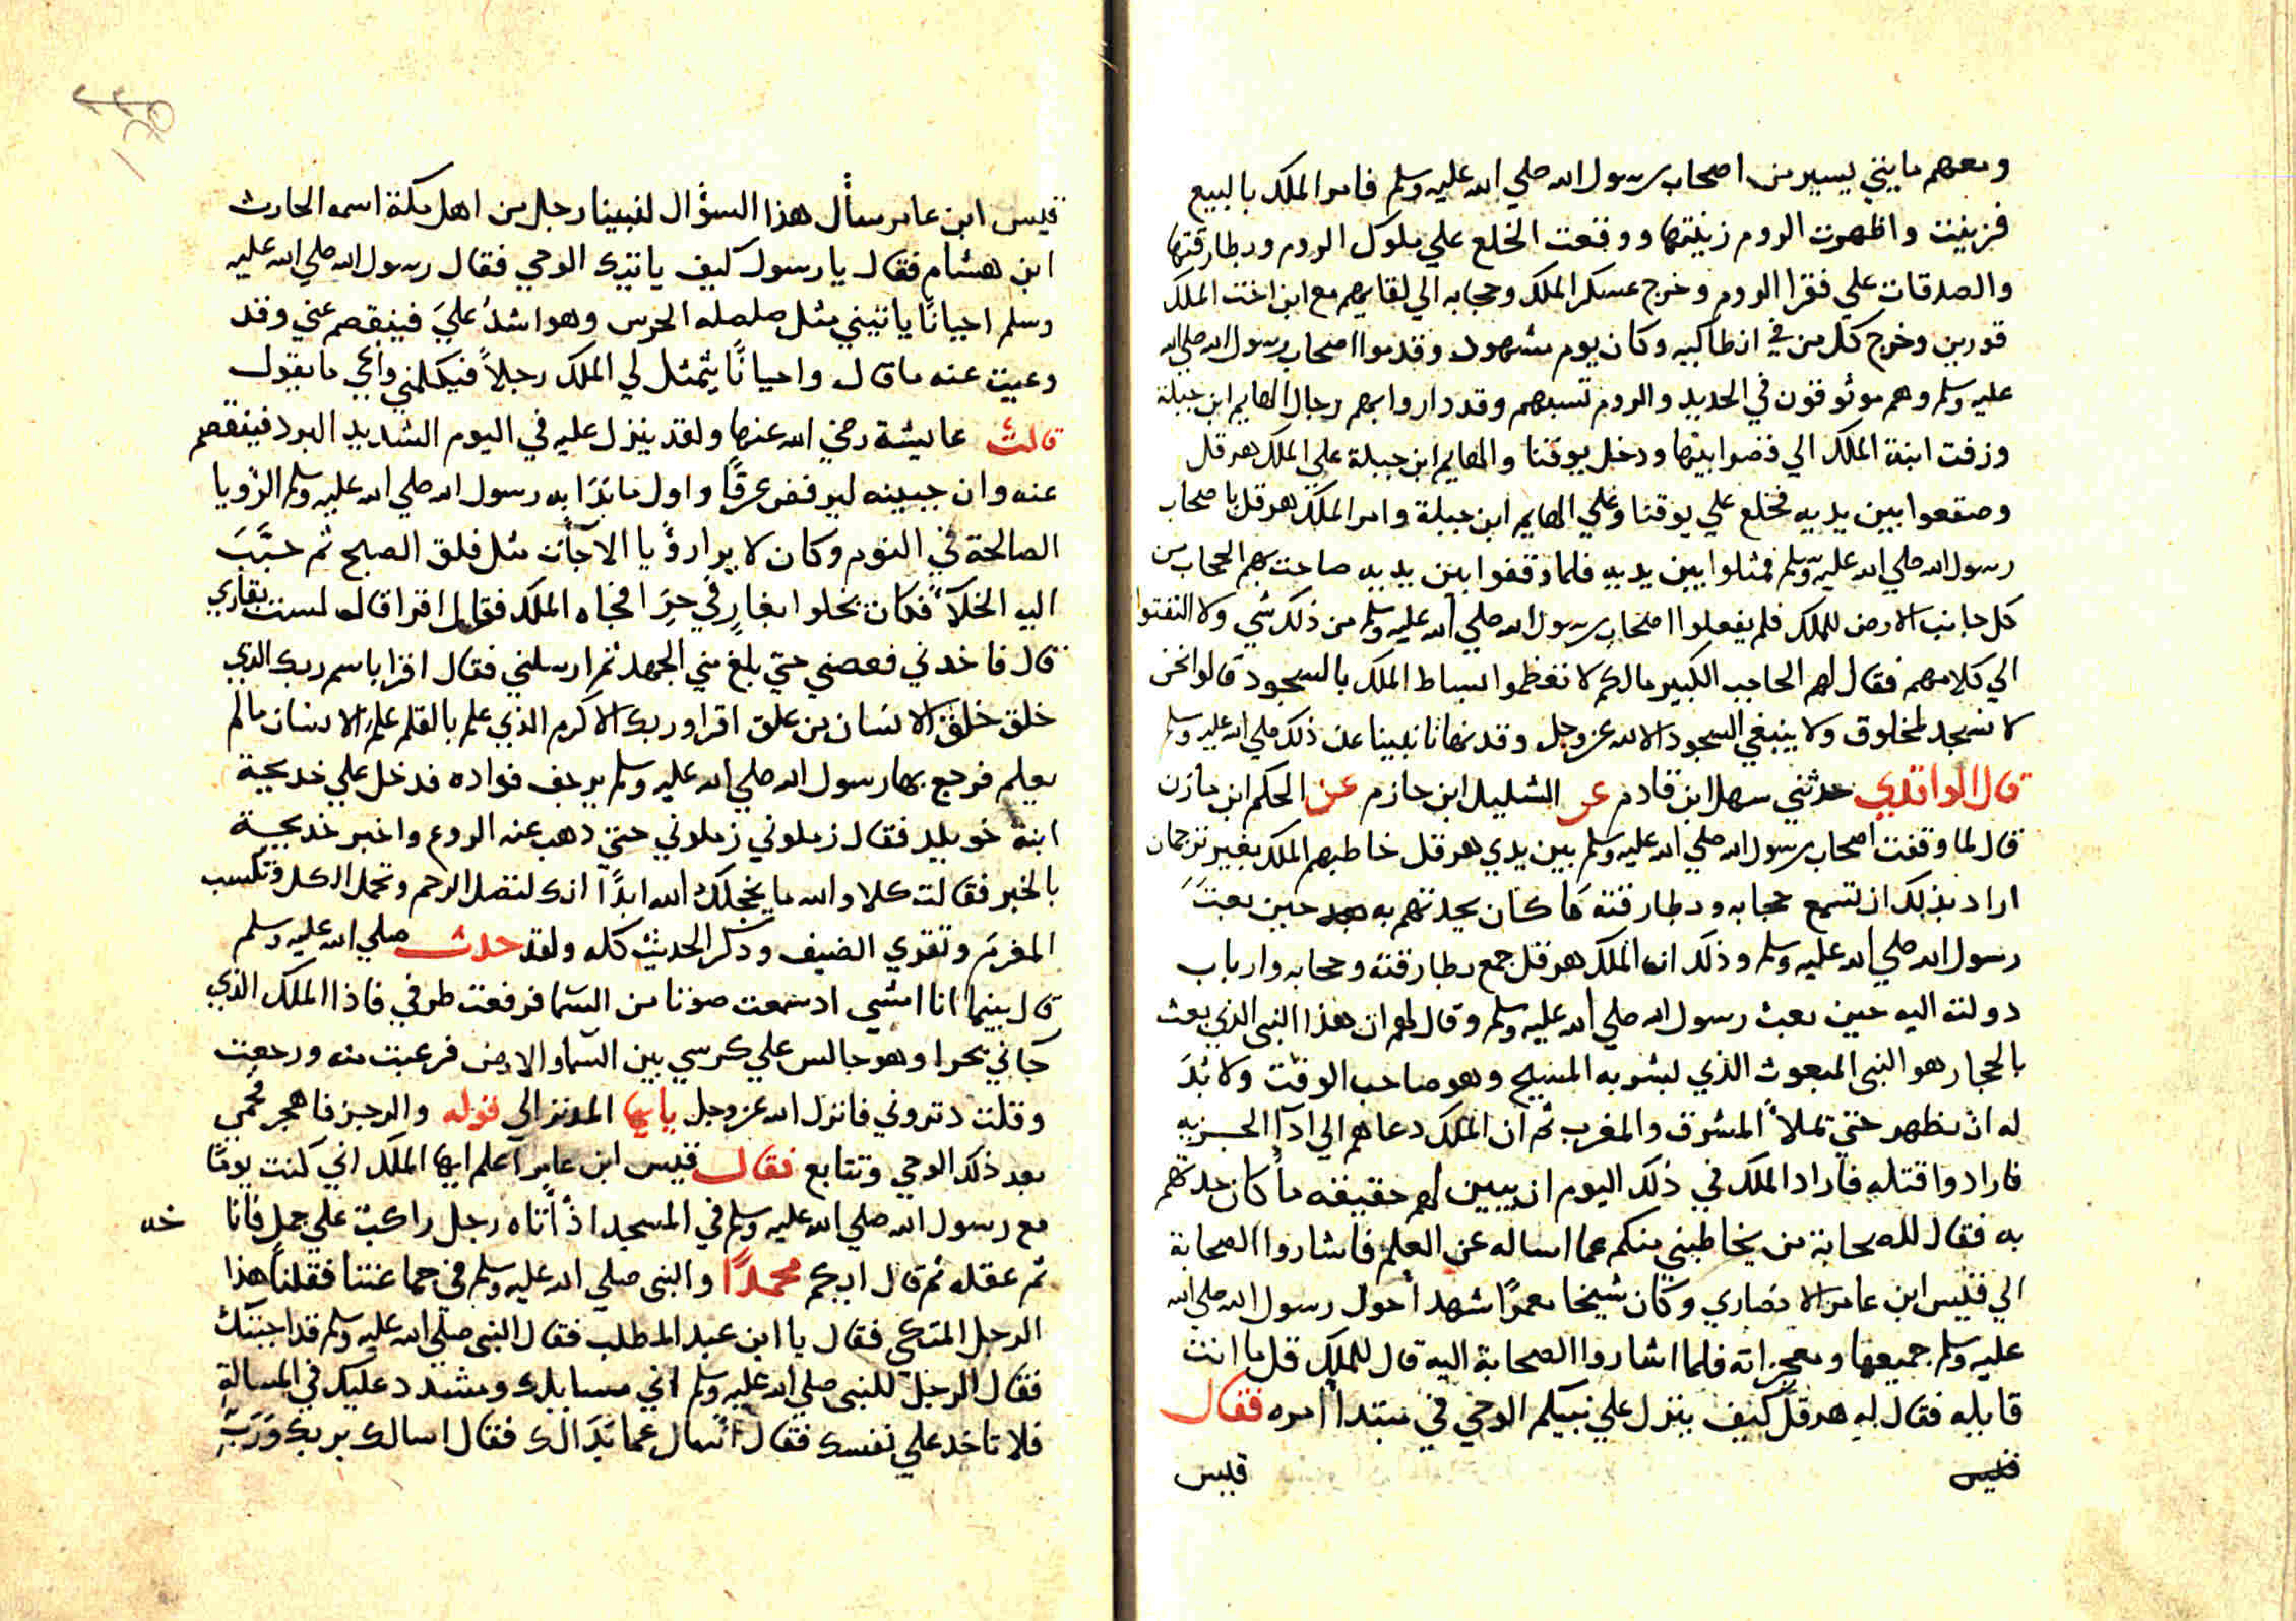 ومعهم مايتي يسير من اصحاب رسول الله صلي الله عليه وسلم فامر الملك بالبيع
فزينت واظهرت الروم زينتها ووقعت الخلع علي ملوك الروم وبطارقتها
والصدقات علي فقرا الروم وخرج عسكر الملك وحجابه الي لقايهم مع ابن اخت الملك
قورين وخرج كل من في انطاكيه وكان يوم مشهود وقدموا اصحاب رسول الله صلي الله
عليه وسلم وهم موثوقون في الحديد والروم تسبهم وقد داروا بهم رجال الهايم ابن جبلة
وزفت ابنة الملك الي قصرابيها ودخل يوقنا والهايم ابن جبلة علي الملك هرقل
وصقعوا بين يديه فخلع علي يوقنا وعلي الهايم ابن جبلة وامر الملك هرقل باصحاب
رسول الله صلي الله عليه وسلم فمثلوا بين يديه فلما وقفوا بين يديه صاحت بهم الحجاب من
كل جانب الارض للملك فلم يفعلوا اصحاب رسول الله صلي الله عليه وسلم من ذلك شي ولا التفتوا
الي كلامهم فقال لهم الحاجب الكبير مالكم لا تعظموا لبساط الملك بالسجود قالوا نحن
لا نسجد لمخلوق ولا ينبغي السجود الا لله عز وجل وقد نهانا نبينا عن ذلك صلي الله عليه وسلم
قال الواقدي حدثني سهل ابن قادم عن الشليل ابن حازم عن الحكم ابن مازن
قال لما وقفت اصحاب رسول الله صلي الله عليه وسلم بين يدي هرقل خاطبهم الملك بغير ترجمان
اراد بذلك ان تسمع حجابه وبطارقته ما كان يحدثهم به حين بعث
رسول الله صلي الله عليه وسلم وذلك ان الملك هرقل جمع بطارقته وحجابه وارباب
دولته اليه حين بعث رسول الله صلي الله عليه وسلم وقال لهم ان هذا النبي الذي بعث
بالحجاز هو النبي المبعوث الذي بشر به المسيح وهو صاحب الوقت ولا بد
له ان يظهر حتي تملا المشرق والمغرب ثم ان الملك دعاهم الي اداا الجزيه
فارادوا قتله فاراد الملك في ذلك اليوم ان يبين لهم حقيقه ما كان حدثهم
به فقال للصحابة من يخاطبني منكم عما اساله عن العلم فاشاروا الصحابة
الي قيس ابن عامر الانصاري وكان شيخا معمرا شهد احوال رسول الله صلي الله
عليه وسلم جميعها ومعجزاته فلما اشاروا الصحابة اليه قال للملك قل ما انت
قايله فقال له هرقل كيف ينزل علي نبيكم الوحي في مبتدا امره فقال
قيس
قيس
قيس ابن عامر سأل هذا السؤال لنبينا رجل من اهل مكة اسمه الحارث
ابن هشام فقال يا رسول كيف ياتيك الوحي فقال رسول الله صلي الله عليه
وسلم احيانا ياتيني مثل صلصله الجرس وهو اشد علي فينقصم عني وقد
وعيت عنه ما قال واحيانا يتمثل لي الملك رجلاً فيكلمني واعي ما يقول
قالت عايشة رضي الله عنها ولقد ينزل عليه في اليوم الشديد البرد فينقصم
عنه وان جبينه ليرفض عرقاً واول ما بدا به رسول الله صلي الله عليه وسلم الرويا
الصالحة في النوم وكان لا يرا رؤيا الا جأت مثل فلق الصبح ثم حبب
اليه الخلاء فكان يخلوا بغار في حرا فجاه الملك فقال له اقرا قال لست بقاري
قال فاخدني فعصني حتي بلغ مني الجهد ثم ارسلني فقال اقرا باسم ربك الذي
خلق خلق الانسان من علق اقرا وربك الاكرم الذي علم بالقلم علم الانسان مالم
يعلم فرجع بها رسول الله صلي الله عليه وسلم يرجف فواده فدخل علي خديجة
ابنة خويلد فقال زملوني زملوني حتي دهب عنه الروع واخبر خديجة
بالخبر فقالت كلا والله ما يخجلك الله ابداً انك لتصل الرحم وتحمل الكل وتكسب
المغرم وتقوي الضيف وذكر الحديث كله ولقد حدث صلي الله عليه وسلم
قال بينما انا امشي اد سمعت صوتا من السما فرفعت طرفي فاذا الملك الذي
جاني بحرا وهو جالس علي كرسي بين السما والارض فرعبت منه ورجعت
وقلت دثروني فانزل الله عز وجل يا ايها المدثر الي قوله والرجز فاهجر فحمي
بعد ذلك الوحي وتتابع فقال قيس ابن عامر اعلم ايها الملك اني كنت يوما
مع رسول الله صلي الله عليه وسلم في المسجد اذ أتاه رجل راكب علي جمل فانا خه
ثم عقله ثم قال ايكم محمداً والنبي صلي الله عليه وسلم في جماعتنا فقلنا هذا
الرجل المتكي فقال يا ابن عبد المطلب فقال النبي صلي الله عليه وسلم قد اجبتك
فقال الرجل للنبي صلي الله عليه وسلم اني مسايلك ومشدد عليك في المسالة
فلا تاخد علي نفسك فقال اسال عما بدا لك فقال اسالك بربك ورب